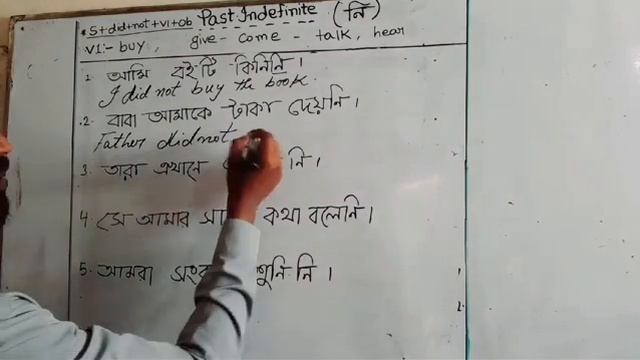 S+did+not+v1+ob Past Indefinite (নি)
V1:- buy, give - come - talk, hear
1. আমি বইটি কিনিনি।
I did not buy the book.
2. বাবা আমাকে টাকা দেয়নি।
Father did not
3. তারা এখানে নি।
4. সে আমার কথা বলেনি।
5. আমরা শুনি নি।